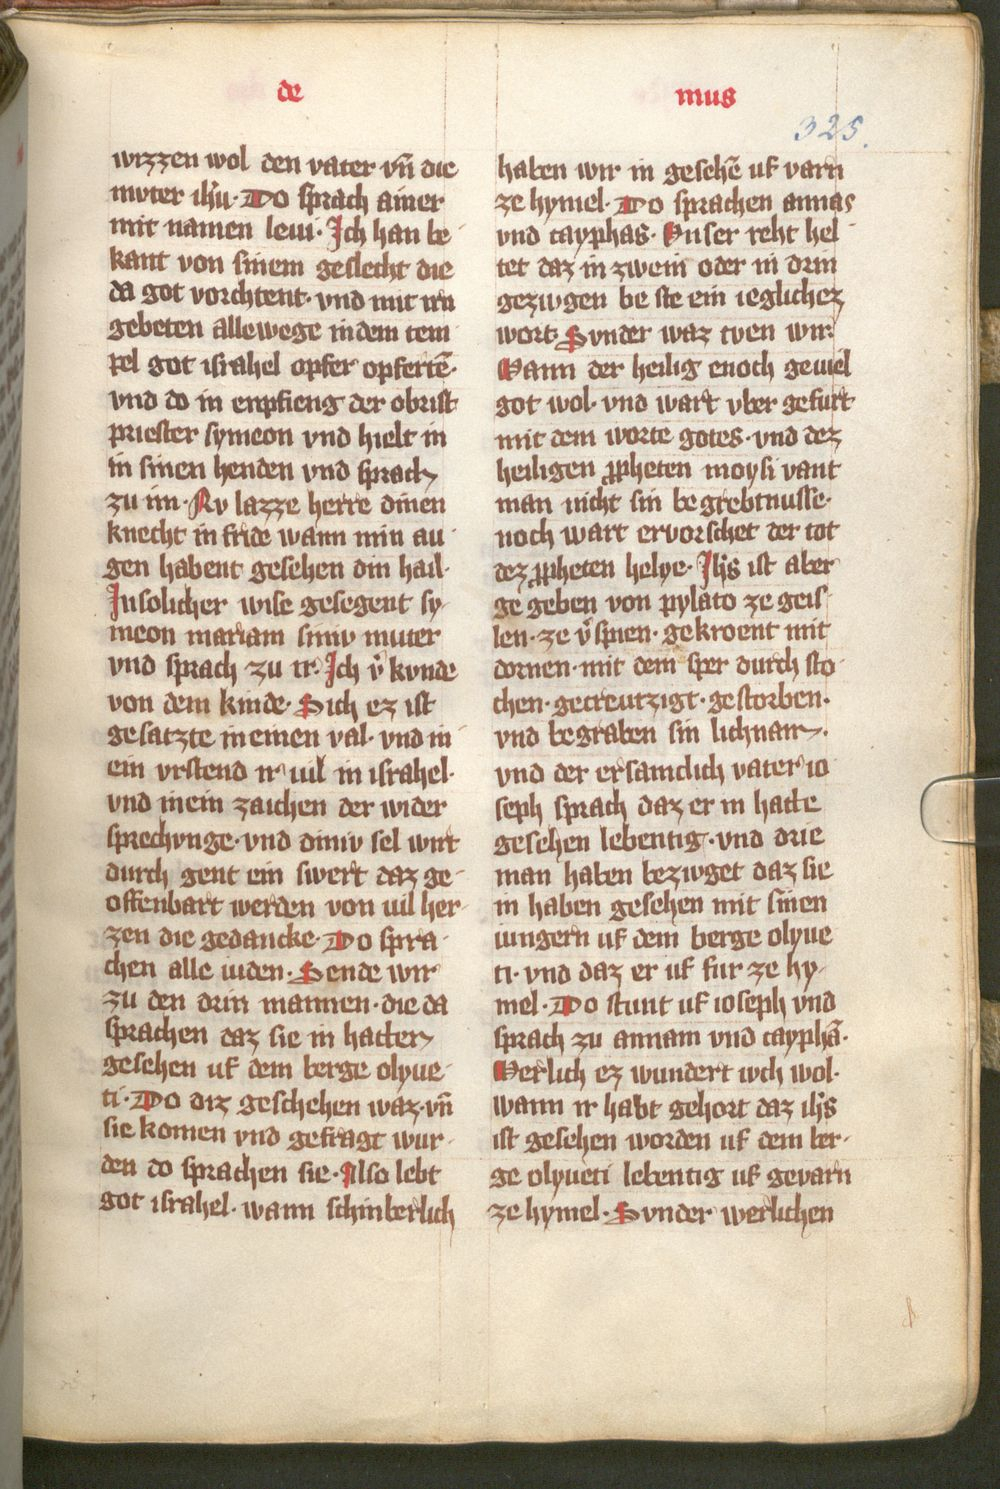 de
mus
325.
wizzen wol den vater vñ die
mvter ihũ· Do sprach ainer
mit namen leui· Ich han be
kant von sinem geslecht die
da got vorchtent· vnd mit irn
gebeten allewege in dem tem
pel got israhel opfer opfertẽ·
vnd do in enpfieng der obrist
priester symeon vnd hielt in
in sinen henden vnd sprach
zu im· Nv lazze herre dinen
knecht in fride wann min au
gen habent gesehen din hail·
In solicher wise gesegent sy
meon mariam siniv muter
vnd sprach zu ir· Ich v̾ kvnde
von dem kinde· Sich ez ist
gesatzte in einen val· vnd in
ein vrstend ir uil in israhel·
vnd in ein zaichen der wider
sprechvnge· vnd diniv sel wirt
durch gent ein swert daz ge
offenbart werden von uil her
zen die gedancke· Do spra
chen alle iuden· Sende wir
zu den drin mannen· die da
sprachen daz sie in hatten
gesehen uf dem berge olyue
ti· Do diz geschehen waz· vñ
sie komen vnd gefragt wur
den do sprachen sie· Also lebt
got israhel· wann schinberlich
haben wir in gesehẽ uf varn
ze hymel· Do sprachen annas
vnd cayphas· Vnser reht hel
tet daz in zwein oder in drin
gezivgen be ste ein ieglichez
wort· Svnder waz tven wir·
Wann der heilig enoch geuiel
got wol· vnd wart vber gefurt
mit dem worte gotes· vnd dez
heiligen ꝓpheten moysi vant
man nicht sin be grebtnusse·
noch wart ervorschet der tot
dez ꝓpheten helye· Ihs̃ ist aber
ge geben von pylato ze geis
len· ze v̾ spien· gekroent mit
dornen· mit dem sper durch sto
chen· gecreutzigt· gestorben·
vnd begraben sin lichnam·
vnd der ersamclich vater io
seph sprach daz er in hatte
gesehen lebentig· vnd drie
man haben bezivget daz sie
in haben gesehen mit sinen
iungern uf dem berge olyue
ti· vnd daz er uf fur ze hy
mel· Do stunt uf ioseph vnd
sprach zu annam vnd cayphã·
Werlich ez wundert ivch wol·
wann ir habt gehort daz ihs̃
ist gesehen worden uf dem ber
ge olyueti lebentig uf gevarn
ze hymel· Svnder werlichen